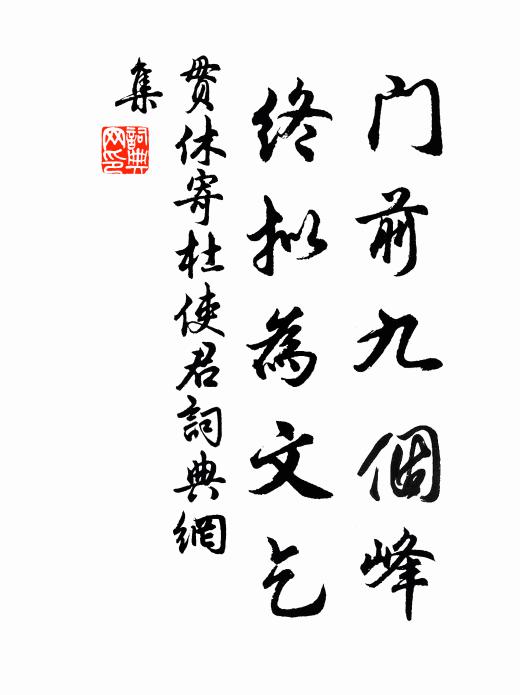 门前九個峰
终拟為文乞
贯休寄杜使君詞典網
集
詞典
网印